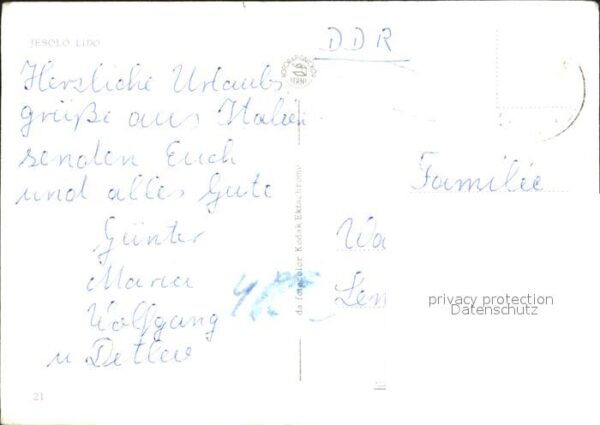 JESOLO LIDO
Herzliche Urlaubs
grüße aus Italien
senden Euch
und alles Gute
Günter
Maria
Wolfgang
u Detlev
21
da fotocolor Kodak Ektachrome
DDR
Familie
Wa
privacy protection
Datenschutz